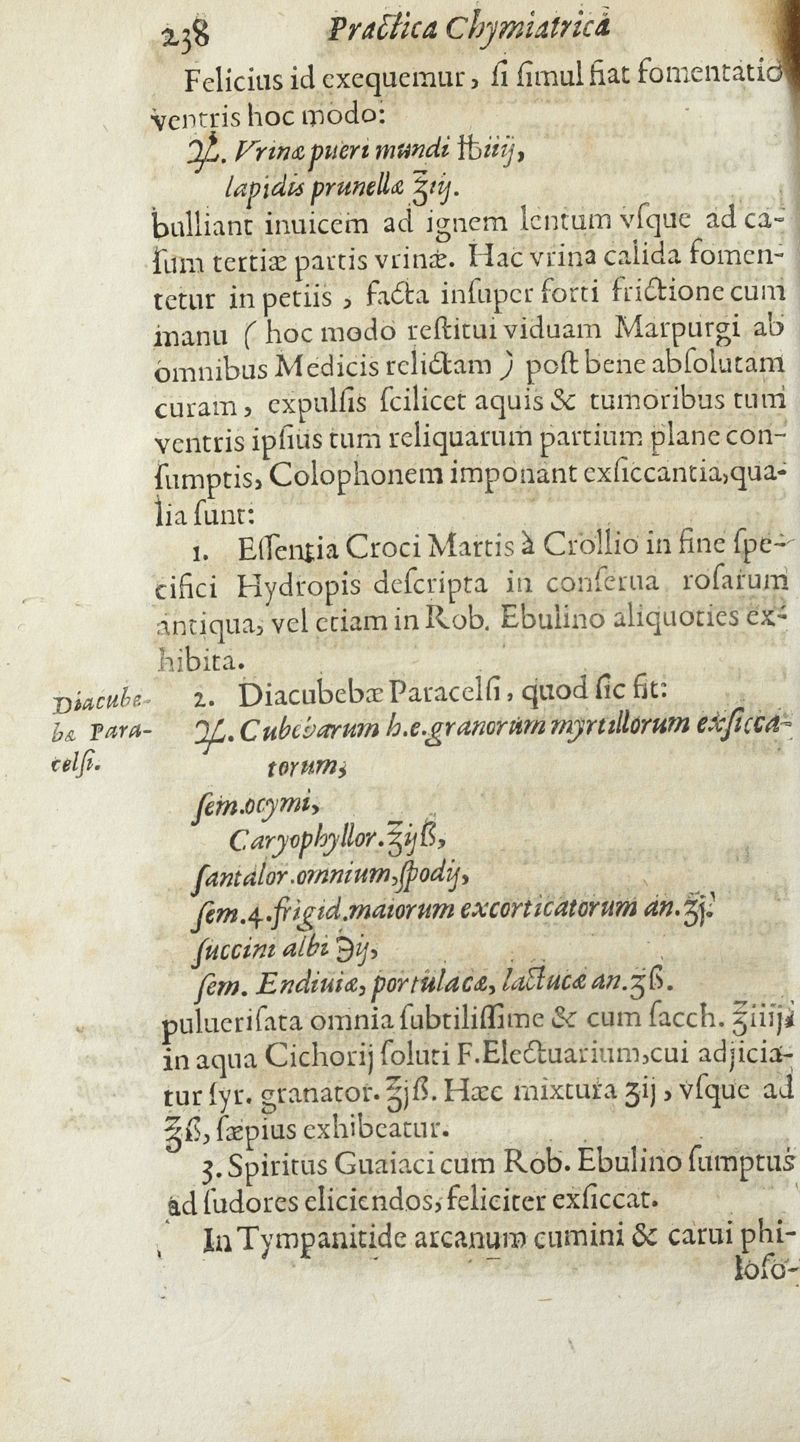 238 Practica Chymiatrica
Felicius id exequemur, ſi ſimul fiat fomentatio
ventris hoc modo:
℞. Vrinæ pueri mundi ℔iiij,
lapidis prunellæ ℥iij.
bulliant inuicem ad ignem lentum vſque ad ca-
ſum tertiæ partis vrinæ. Hac vrina calida fomen-
tetur in petiis, facta inſuper forti frictione cum
manu (hoc modo reſtitui viduam Marpurgi ab
omnibus Medicis relictam) poſt bene abſolutam
curam, expulſis ſcilicet aquis & tumoribus tum
ventris ipſius tum reliquarum partium plane con-
ſumptis, Colophonem imponant exſiccantia, qua-
lia ſunt:
1. Eſſentia Croci Martis à Crollio in fine ſpe-
cifici Hydropis deſcripta in conſerua roſarum
antiqua, vel etiam in Rob. Ebulino aliquoties ex-
hibita.
Diacube-
bæ Para-
celſi.
2. Diacubebæ Paracelſi, quod ſic fit:
℞. Cubebarum h.e. granorum myrtillorum exſicca-
torum,
ſem. ocymi,
Caryophyllor. ℥ijß,
ſantalor. omnium, ſpodij,
ſem. 4. frigid. maiorum excorticatorum an. ℥j.
ſuccini albi ℈ij,
ſem. Endiuiæ, portulacæ, lactucæ an. ʒß.
puluerifata omnia ſubtiliſſime & cum ſacch. ℥iiij
in aqua Cichorij ſoluti F. Electuarium, cui adjicia-
tur ſyr. granator. ℥jß. Hæc mixtura ʒij, vſque ad
℥ß, ſæpius exhibeatur.
3. Spiritus Guaiaci cum Rob. Ebulino ſumptus
ad ſudores eliciendos, feliciter exſiccat.
In Tympanitide arcanum cumini & carui phi-
loſo-